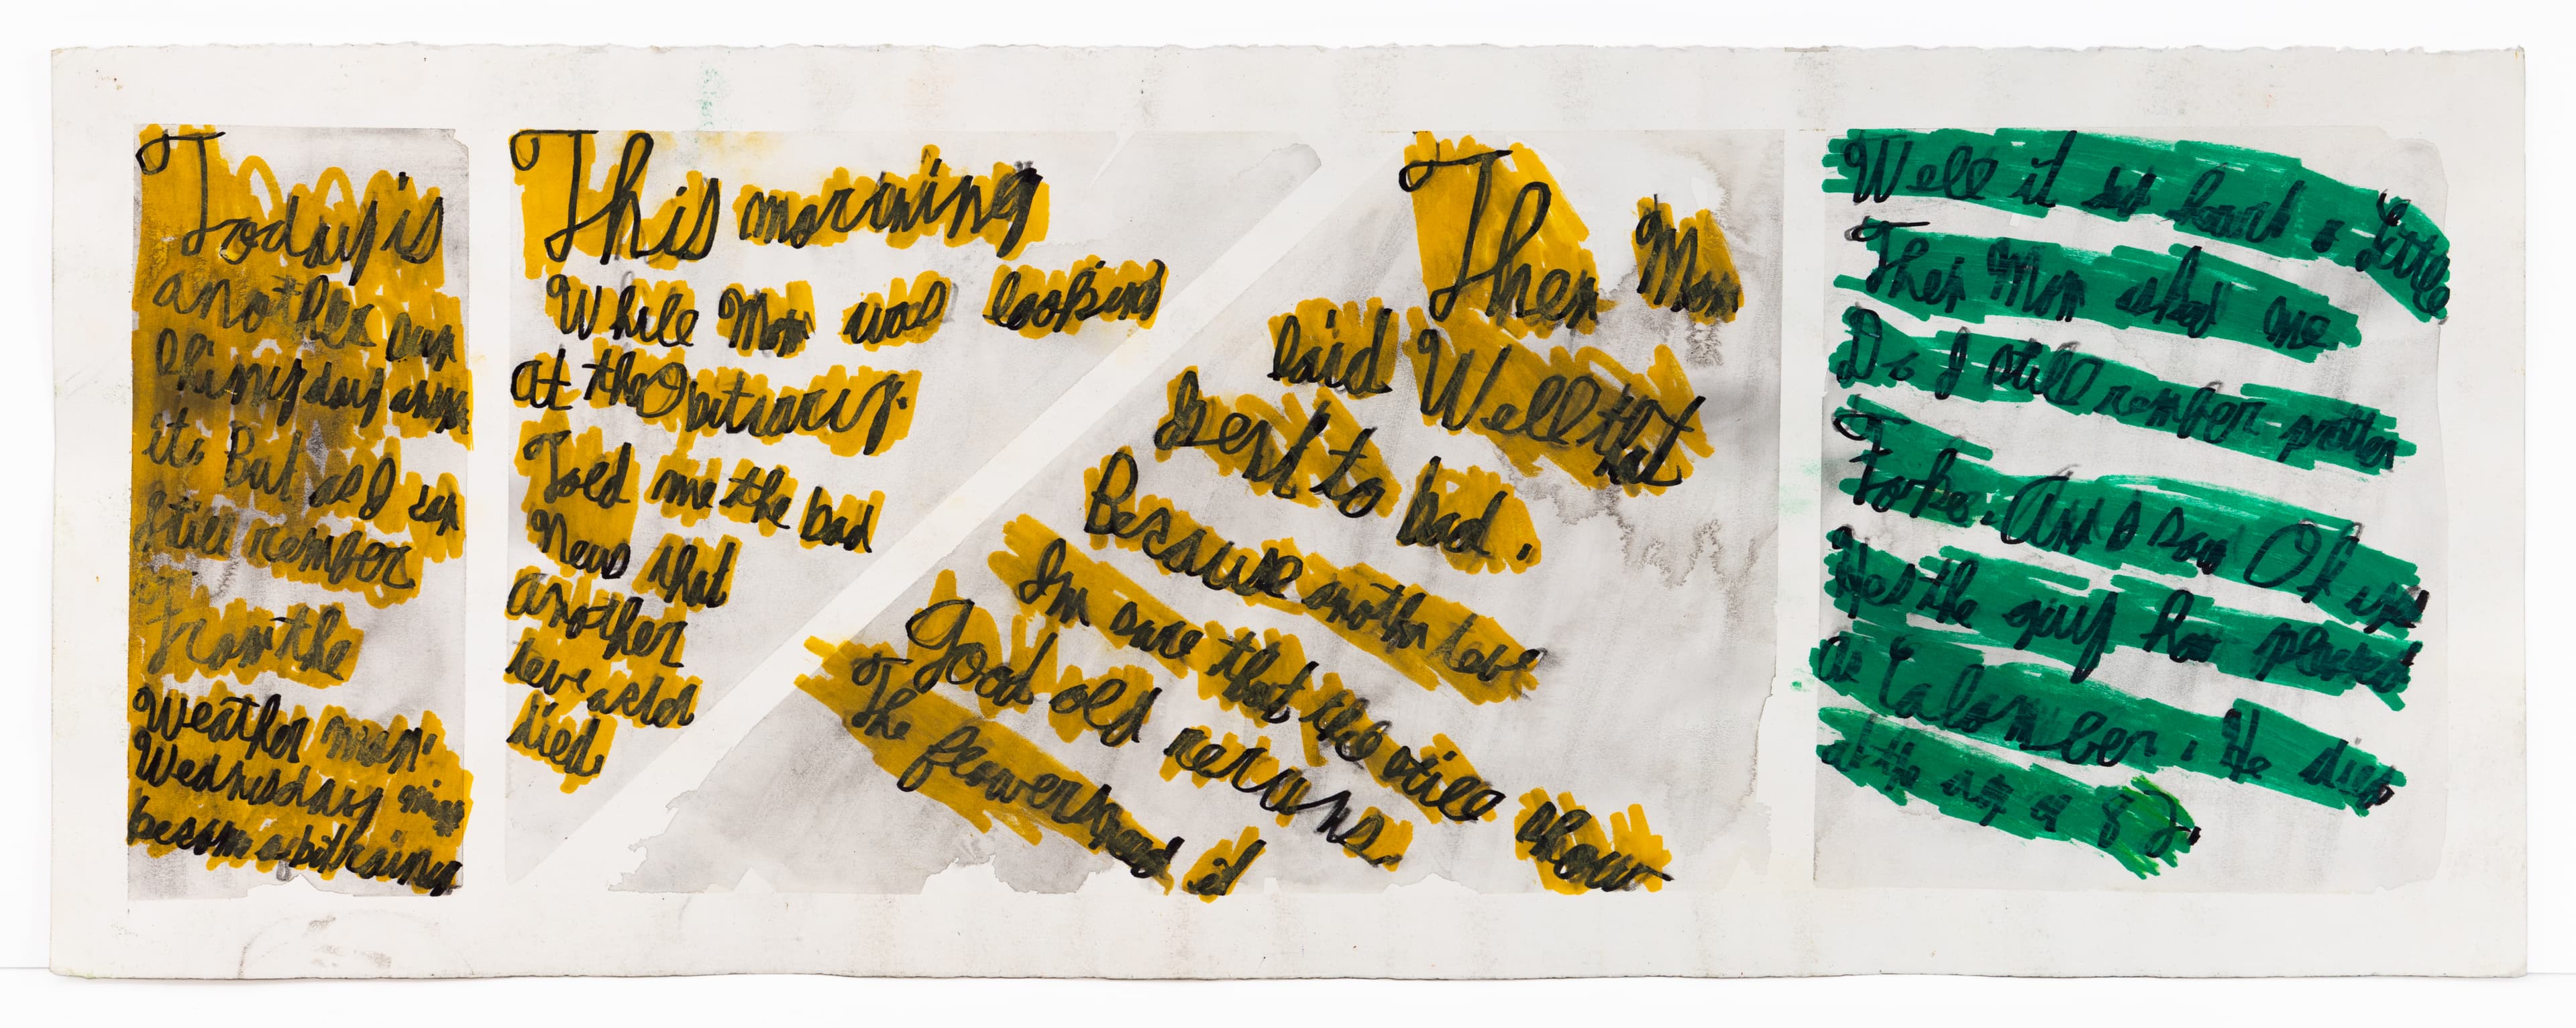 Today is
another sun
Shinny day
it. But as I can
still rember
From the
Weather man.
Wednesday
becom a bit rainy
This morning
While Mom was looking
at the Obituary.
Told me the bad
News that
another
died
Then Mom
said Well that
best to bad.
Because another
Im sure that still show
Good old reruns.
The flowers it
Well it so hard a little
Then Mom asked me
Do I still rember
And I say Oh yes
Hes the guy ho played
a Calomber. He died
at the age of 82.